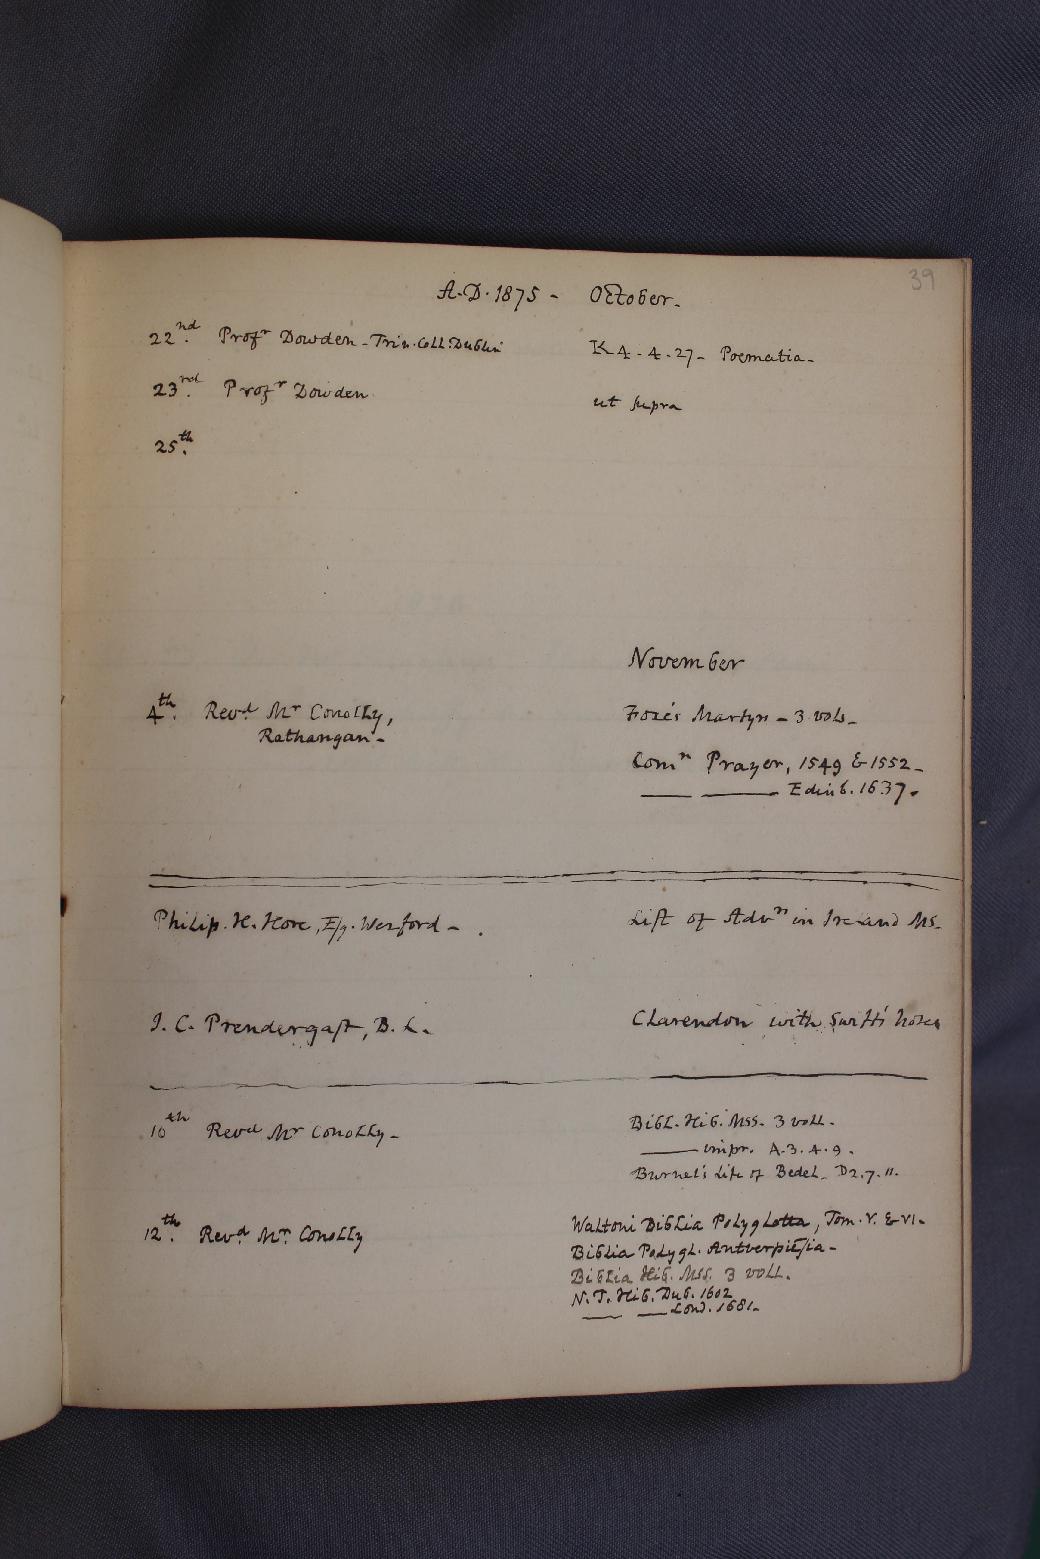 39
A.D. 1875 - October.
22nd. Profr Dowden - Trin. Coll. Dublin K4. 4. 27 - Poematia -
23rd. Profr Dowden ut supra
25th.
November
4th. Revd. Mr Conolly, Foxe's Martyrs - 3 vols -
Rathangan -
Comn Prayer, 1549 & 1552 -
—— —— Edinb. 1637.
Philip. H. Hore, Esq. Wexford - List of Advrs in Ireland Ms.
J. C. Prendergast, B. L. Clarendon with Swift's notes
10th Revd Mr Conolly - Bibl. Hib. Mss. 3 voll.
—— impr. A. 3. 4. 9.
Burnet's Life of Bedel - D2. 7. 11.
12th. Revd. Mr. Conolly Waltoni Biblia Polyglotta, Tom. V. & VI -
Biblia Polygl. Antverpiessia -
Biblia Hib. Mss. 3 voll.
N. T. Hib. Dub. 1602
—— —— Lond. 1681 -